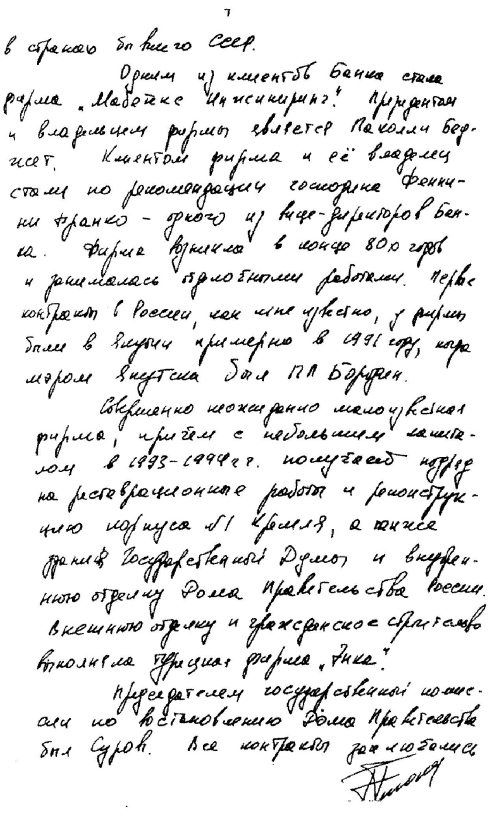 7
в странаю бывшего СССР.
Одним из клиентов Банка стала
фирма „Мабетекс Инжиниринг". Президентом
и владельцем фирмы является Паколли Бед-
жет. Клиентом фирма и её владелец
стали по рекомендации господина Фенни-
ни Франко – одного из вице-директоров Бан-
ка. Фирма возникла в конце 80х годов
и занималась отделочными работами. Первые
контракты в России, как мне известно, у фирмы
были в Якутии примерно в 1991 году, когда
мэром Якутска был П.П. Бородин.
Совершенно неожиданно малоизвестная
фирма, причем с небольшим капита-
лом в 1993-1994 гг. получает подряд
на реставрационные работы и реконструк-
цию корпуса №1 Кремля, а также
здания Государственной Думы и внутрен-
нюю отделку Дома Правительства России.
Внешнюю отделку и гражданское строительство
выполняла турецкая фирма „Энка".
Председателем государственной комис-
сии по востановлению Дома Правительства
был Суров. Все контракты заключались